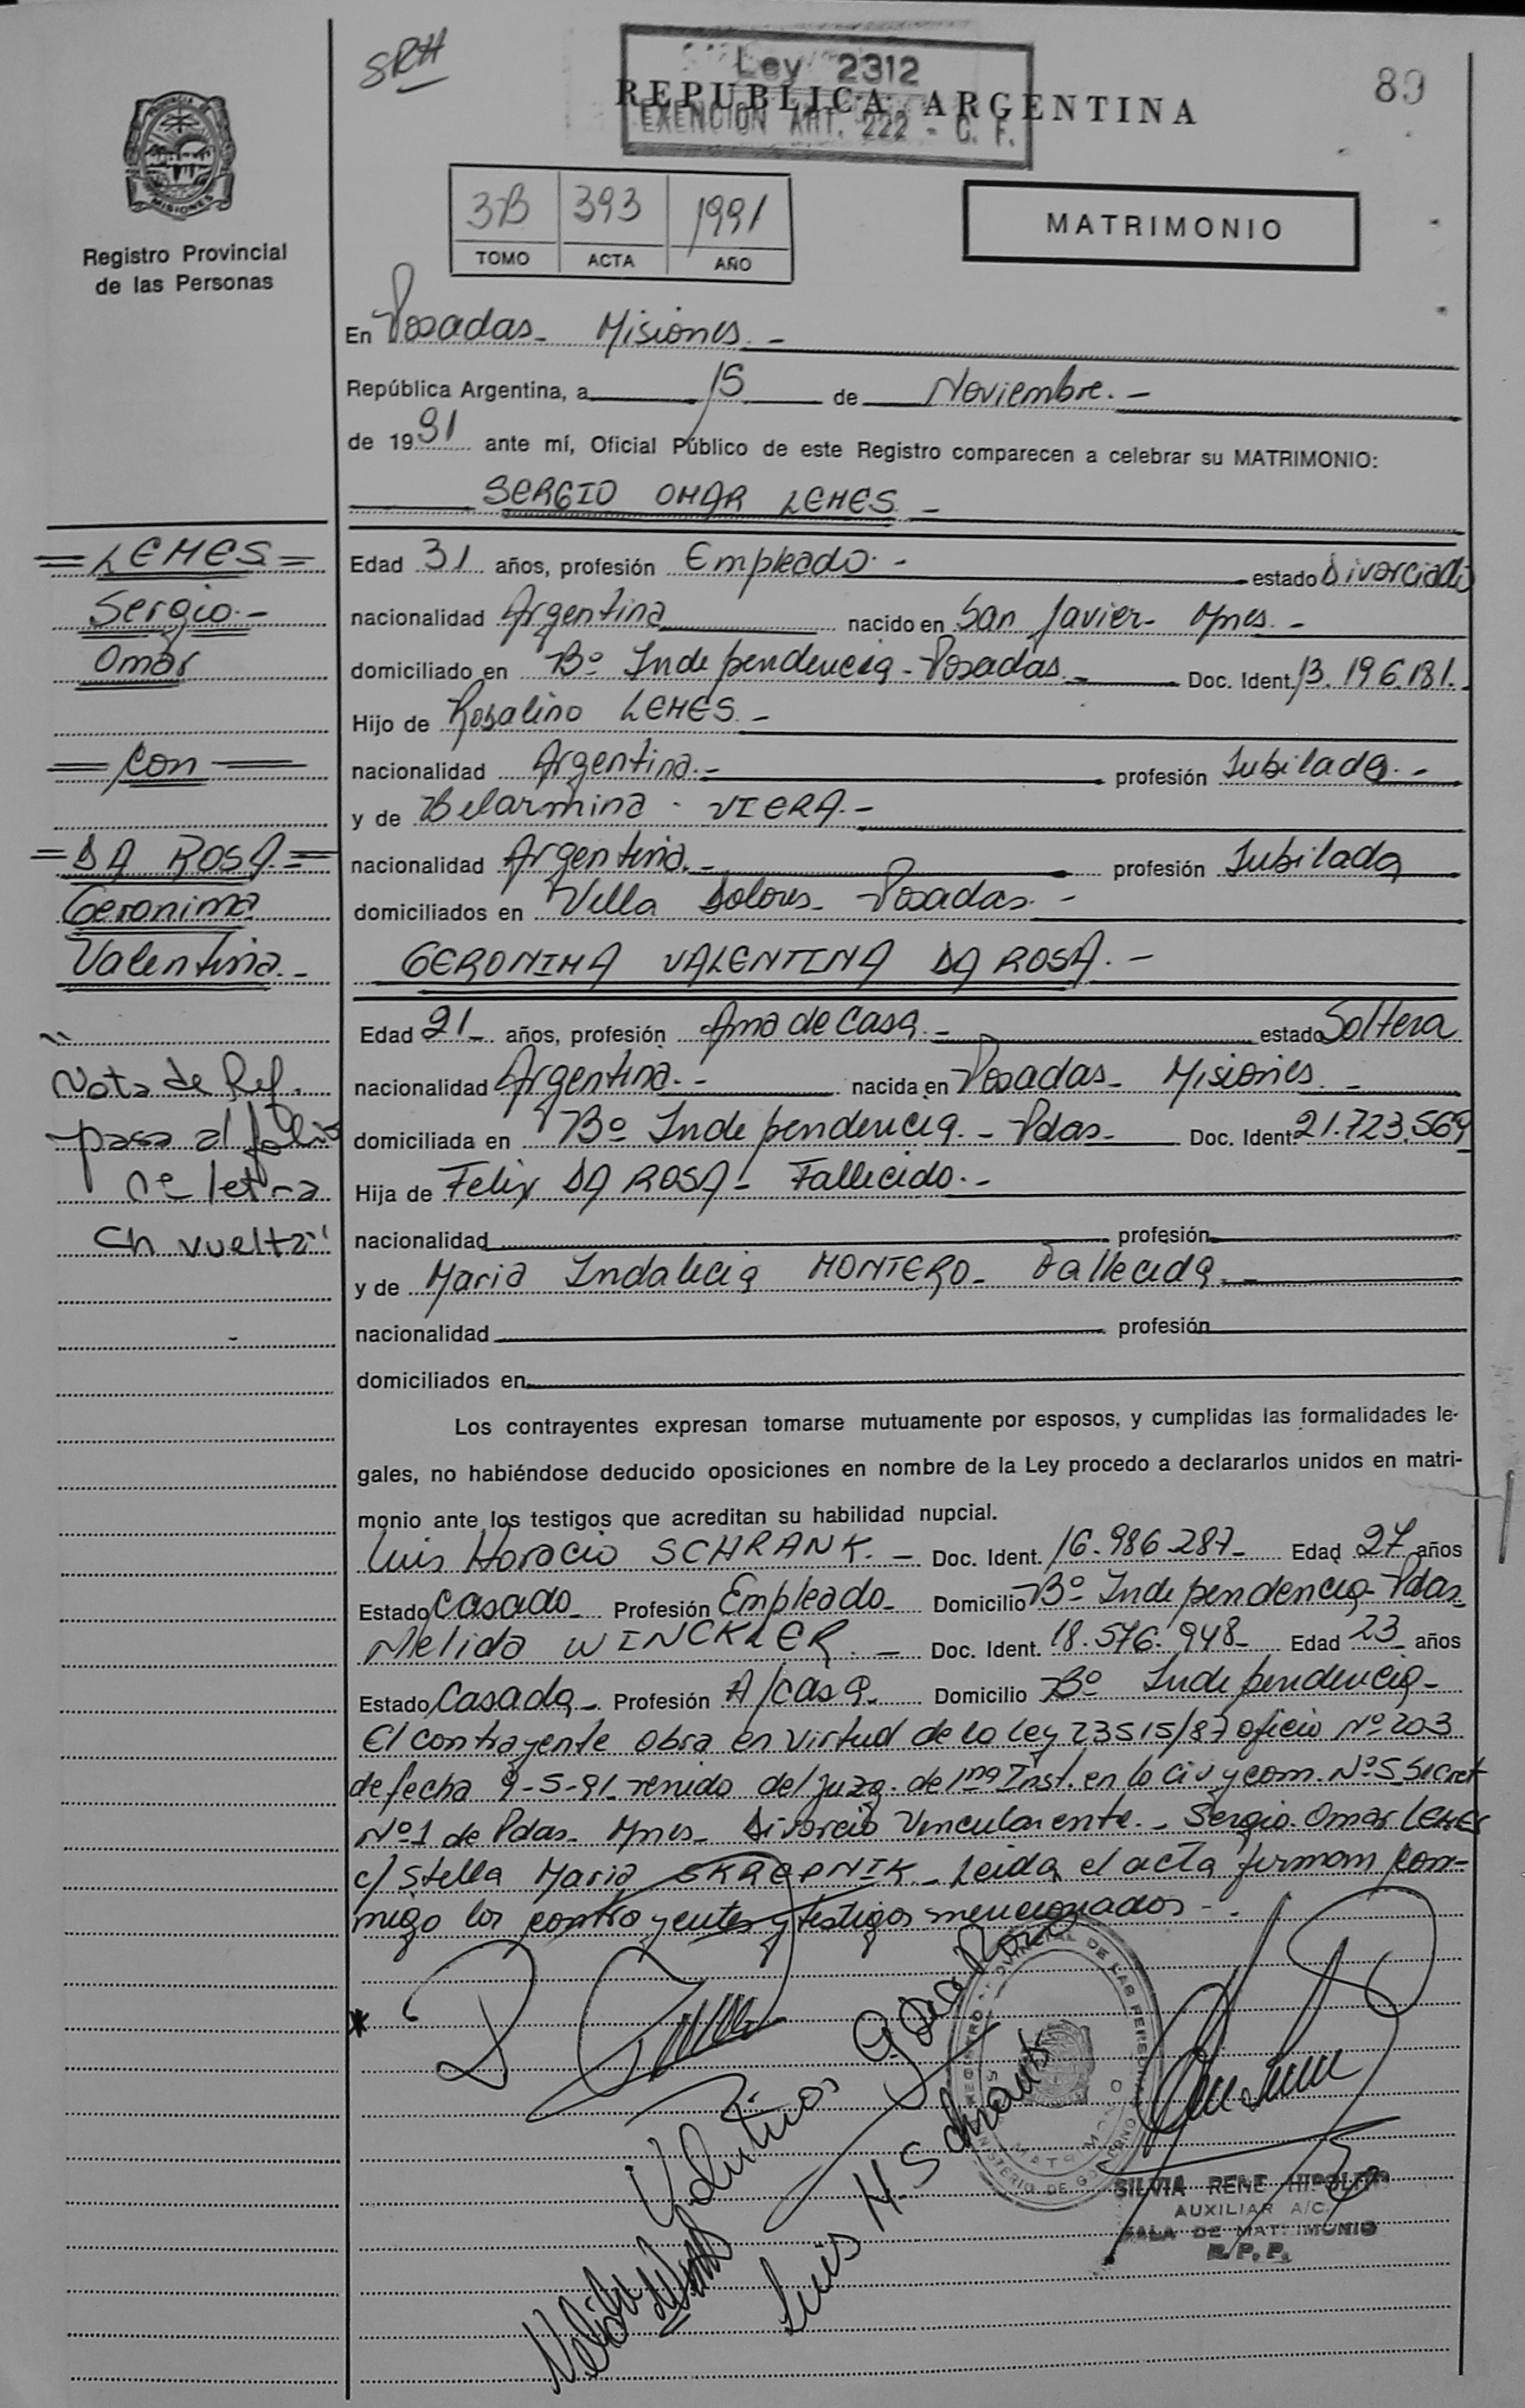 SRH
Ley 2312
EXENCION ART. 222 - C. F.
REPUBLICA ARGENTINA
89
MISIONES
Registro Provincial
de las Personas
3B 393 1991
TOMO ACTA AÑO
MATRIMONIO
En Posadas - Misiones. -
República Argentina, a 15 de Noviembre. -
de 1991 ante mí, Oficial Público de este Registro comparecen a celebrar su MATRIMONIO:
SERGIO OMAR LEMES -
= LEMES =
Sergio. -
Omar
= con =
= DA ROSA =
Geronima
Valentina. -
Edad 31 años, profesión Empleado. - estado Divorciado
nacionalidad Argentina nacido en San Javier - Mnes. -
domiciliado en Bº Independencia - Posadas. - Doc. Ident. 13.196.181. -
Hijo de Rosalino LEMES. -
nacionalidad Argentina. - profesión Jubilado. -
y de Belarmina - VIERA. -
nacionalidad Argentina. - profesión Jubilada
domiciliados en Villa Dolores - Posadas. -
GERONIMA VALENTINA DA ROSA. -
Edad 21 - años, profesión Ama de Casa. - estado Soltera
nacionalidad Argentina. - nacida en Posadas - Misiones. -
domiciliada en Bº Independencia. - Pdas. - Doc. Ident. 21.723.569
Hija de Felix DA ROSA - Fallecido. -
nacionalidad profesión
y de Maria Indalecia MONTERO - Fallecida. -
nacionalidad profesión
domiciliados en
"Nota de Ref.
pasa al folio
nº letra
Ch vuelta"
Los contrayentes expresan tomarse mutuamente por esposos, y cumplidas las formalidades le-
gales, no habiéndose deducido oposiciones en nombre de la Ley procedo a declararlos unidos en matri-
monio ante los testigos que acreditan su habilidad nupcial.
Luis Horacio SCHRANK. - Doc. Ident. 16.986.287 - Edad 27 años
Estado Casado - Profesión Empleado - Domicilio Bº Independencia - Pdas.
Nelida WINCKLER. - Doc. Ident. 18.576.948 - Edad 23 años
Estado Casada - Profesión A/casa. Domicilio Bº Independencia -
El contrayente obra en virtud de la ley 23515/87 oficio Nº 203
de fecha 9-5-91 venido del juzg. de 1ma Inst. en lo Civ y com. Nº 5 Secret
Nº 1 de Pdas. Mnes - Divorcio Vincular ente. - Sergio Omar LEMES
c/ Stella Maria - Leida el acta firman con-
migo los contrayentes y testigos mencionados - .
Valentina G da Rosa
Luis H. Schrank
REGISTRO PROVINCIAL DE LAS PERSONAS
MINISTERIO DE GOBIERNO
MATRIMONIO
SILVIA RENE HIPOLITO
AUXILIAR A/C.
SALA DE MATRIMONIO
R. P. P.